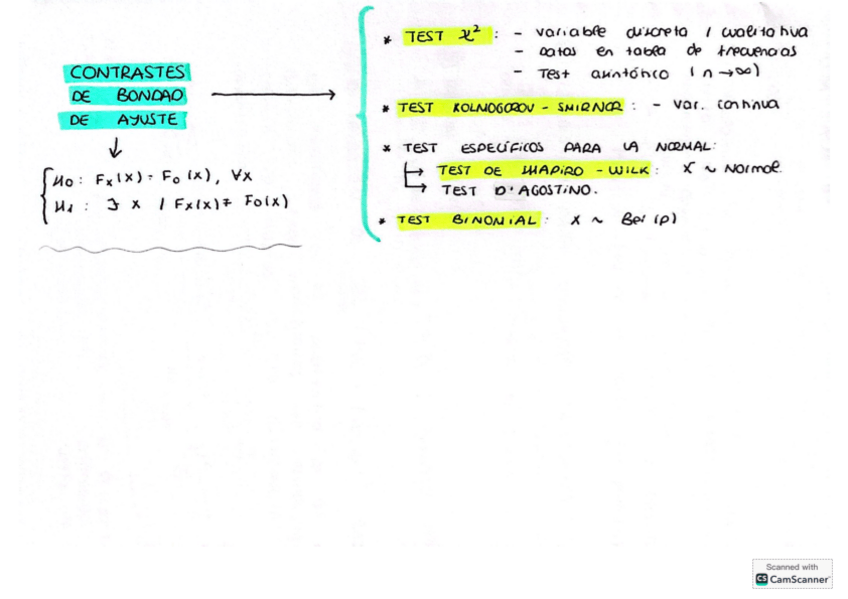 CONTRASTES
DE BONDAD
DE AJUSTE
H₀ : Fx(x) = F₀(x), ∀x
H₁ : ∃ x / Fx(x) ≠ F₀(x)
* TEST χ² : - variable discreta / cualitativa
- Datos en tabla de frecuencias
- Test asintótico (n → ∞)
* TEST KOLMOGOROV - SMIRNOR : - var. continua
* TEST ESPECÍFICOS PARA LA NORMAL:
TEST DE SHAPIRO - WILK : X ~ Normal.
TEST D'AGOSTINO.
* TEST BINOMIAL : X ~ Ber (p)
Scanned with
CS CamScanner